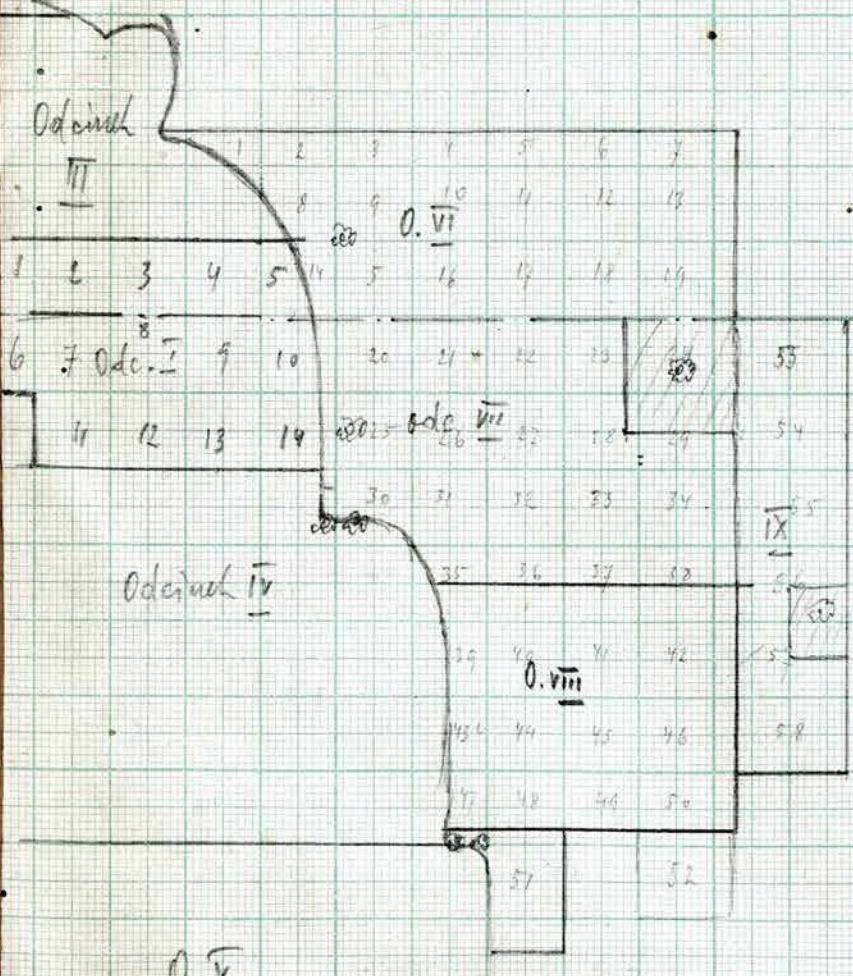 Odcinek
III
1 2 3 4 5 6 7
8 9 10 11 12 13
O. VI
1 2 3 4 5
14 5 16 17 18 19
6 7 Odc. I 8 9 10
20 21 22 23
53
11 12 13 14
25 odc. VII 26 27 28 29
54
30 31 32 33 34
IX 55
Odcinek IV
35 36 37 38
39 40 41 42
O. VIII
43 44 45 46
58
47 48 49 50
51 52
O. V